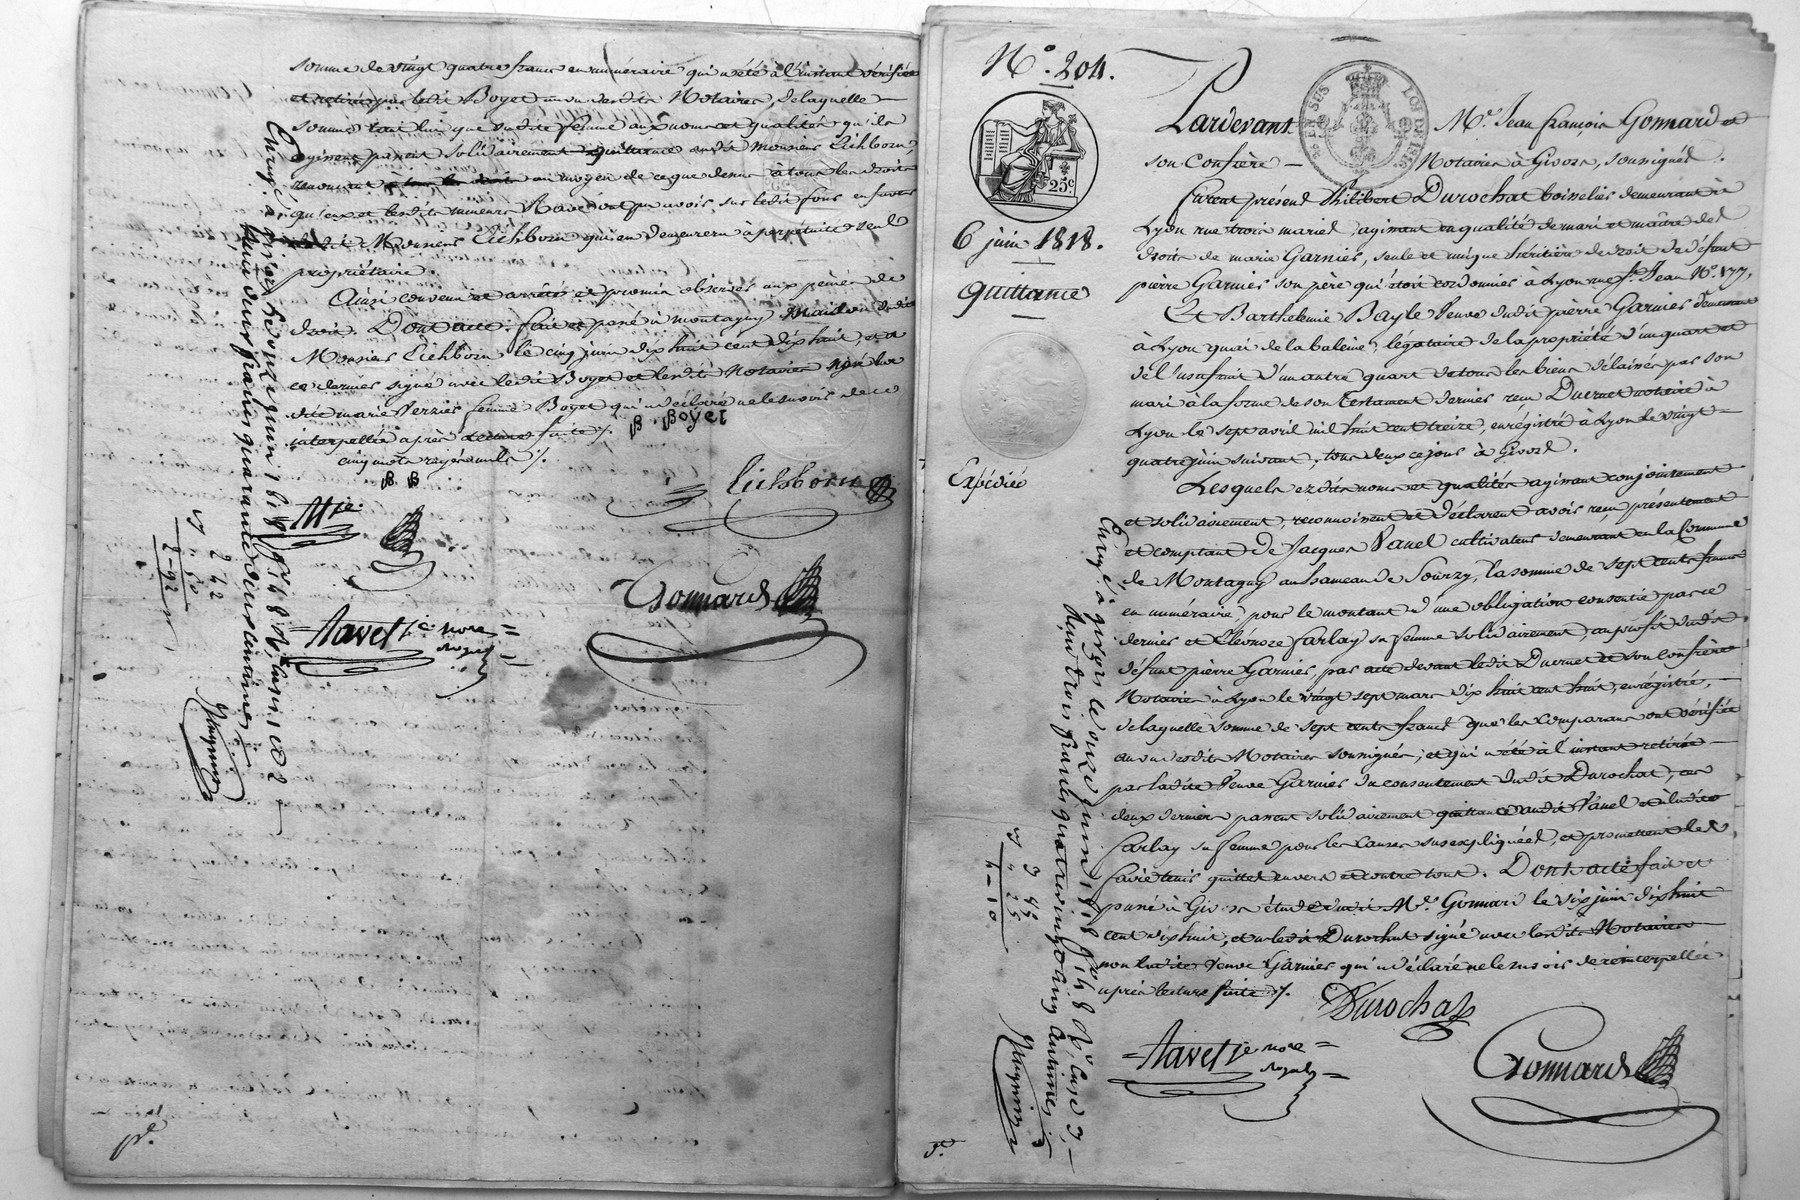 somme de vingt quatre francs en numéraire qui a été à l'instant vérifiée
et retirée par ledit Boyet au vu desdits Notaires, de laquelle
somme tant lui que sadite femme aux noms et qualités qu'ils
agissent passent solidairement quittance audit Monsieur Eichborn
renoncent au moyen de ce que dessus à tous les droits
qu'eux et lesdits mineurs ont et pu avoir, sur ledit fons en faveur
dudit Monsieur Eichborn qui en demeurera à perpétuité seul
propriétaire.
Ainsi convenu et arrêté et promis observer aux peines de
droit. Dont acte. fait et passé à Montagny maison dudit
Monsieur Eichborn le cinq juin dix huit cent dix huit, et a
ce dernier signé avec ledit Boyet et lesdits Notaires non la
dite marie Verzier femme Boyet qui a déclaré ne le savoir de ce
interpellée après lecture faite ./.
B. Boyet
cinq mots rayés nuls ./.
B. B
Eichborn
Mie
Gonnard
Navet Je nore
royal
Enregé. à givors le onze juin 1818 fo. 148 Ro. Case 1 et 2
Reçu deux francs quarante deux centimes
2 42
50
2-92
N°. 204.
25c
6 juin 1818.
Quittance
Expédiée
Pardevant Me. Jean françois Gonnard et
son Confrère — Notaires à Givors, soussignés.
furent présens Philibert Durochat boisselier demeurant à
Lyon rue trois maries agissant en qualité de mari et maître des
droits de marie Garnier, seule et unique héritière de droit de défunt
pierre Garnier son père qui étoit cordonnier à Lyon rue St. Jean N°. 177.
Et Barthelemie Bayle Veuve dudit pierre Garnier demeurant
à Lyon quai de la baleine, légataire de la propriété d'un quart et
de l'usufruit d'un autre quart de tous les biens délaissés par son
mari à la forme de son testament dernier reçu Ducruet notaire à
Lyon le sept avril mil huit cent treize, enregistré à Lyon le vingt
quatre juin suivant, tous deux ce jour à Givors.
Lesquels ezdits noms et qualités agissant conjointement
et solidairement, reconnoissent et déclarent avoir reçu présentement
et comptant De Jacques Vanel cultivateur demeurant en la Commune
de Montagny au hameau de Sourzy, la somme de sept cents francs
en numéraire, pour le montant d'une obligation consentie par ce
dernier et Eléonore farlay sa femme solidairement, au profit dudit
défunt pierre Garnier, par acte devant ledit Ducruet et son Confrère
Notaires à Lyon le vingt sept mars dix huit cent huit, enregistré,
de laquelle somme de sept cents francs que les comparans ont vérifiée
au vu desdits Notaires soussignés, et qui a été à l'instant retirée
par ladite Veuve Garnier du consentement dudit Durochat, ces
deux derniers passent solidairement quittance audit Vanel et à ladite
farlay sa femme pour les causes susexpliquées, et promettent les
faire tenir quittes envers et contre tous. Dont acte fait et
passé à Givors étude dudit Me. Gonnard le six juin dix huit
cent dix huit, et a ledit Durochat signé avec lesdits Notaires
non ladite Veuve Garnier qui a déclaré ne le savoir de ce interpellée
après lecture faite ./.
Durochat
Navet Je nore
royal
Gonnard
Enregé. à givors le onze juin 1818 fo. 148 Ro. Case 3,
Reçu trois francs quatre vingt cinq centimes